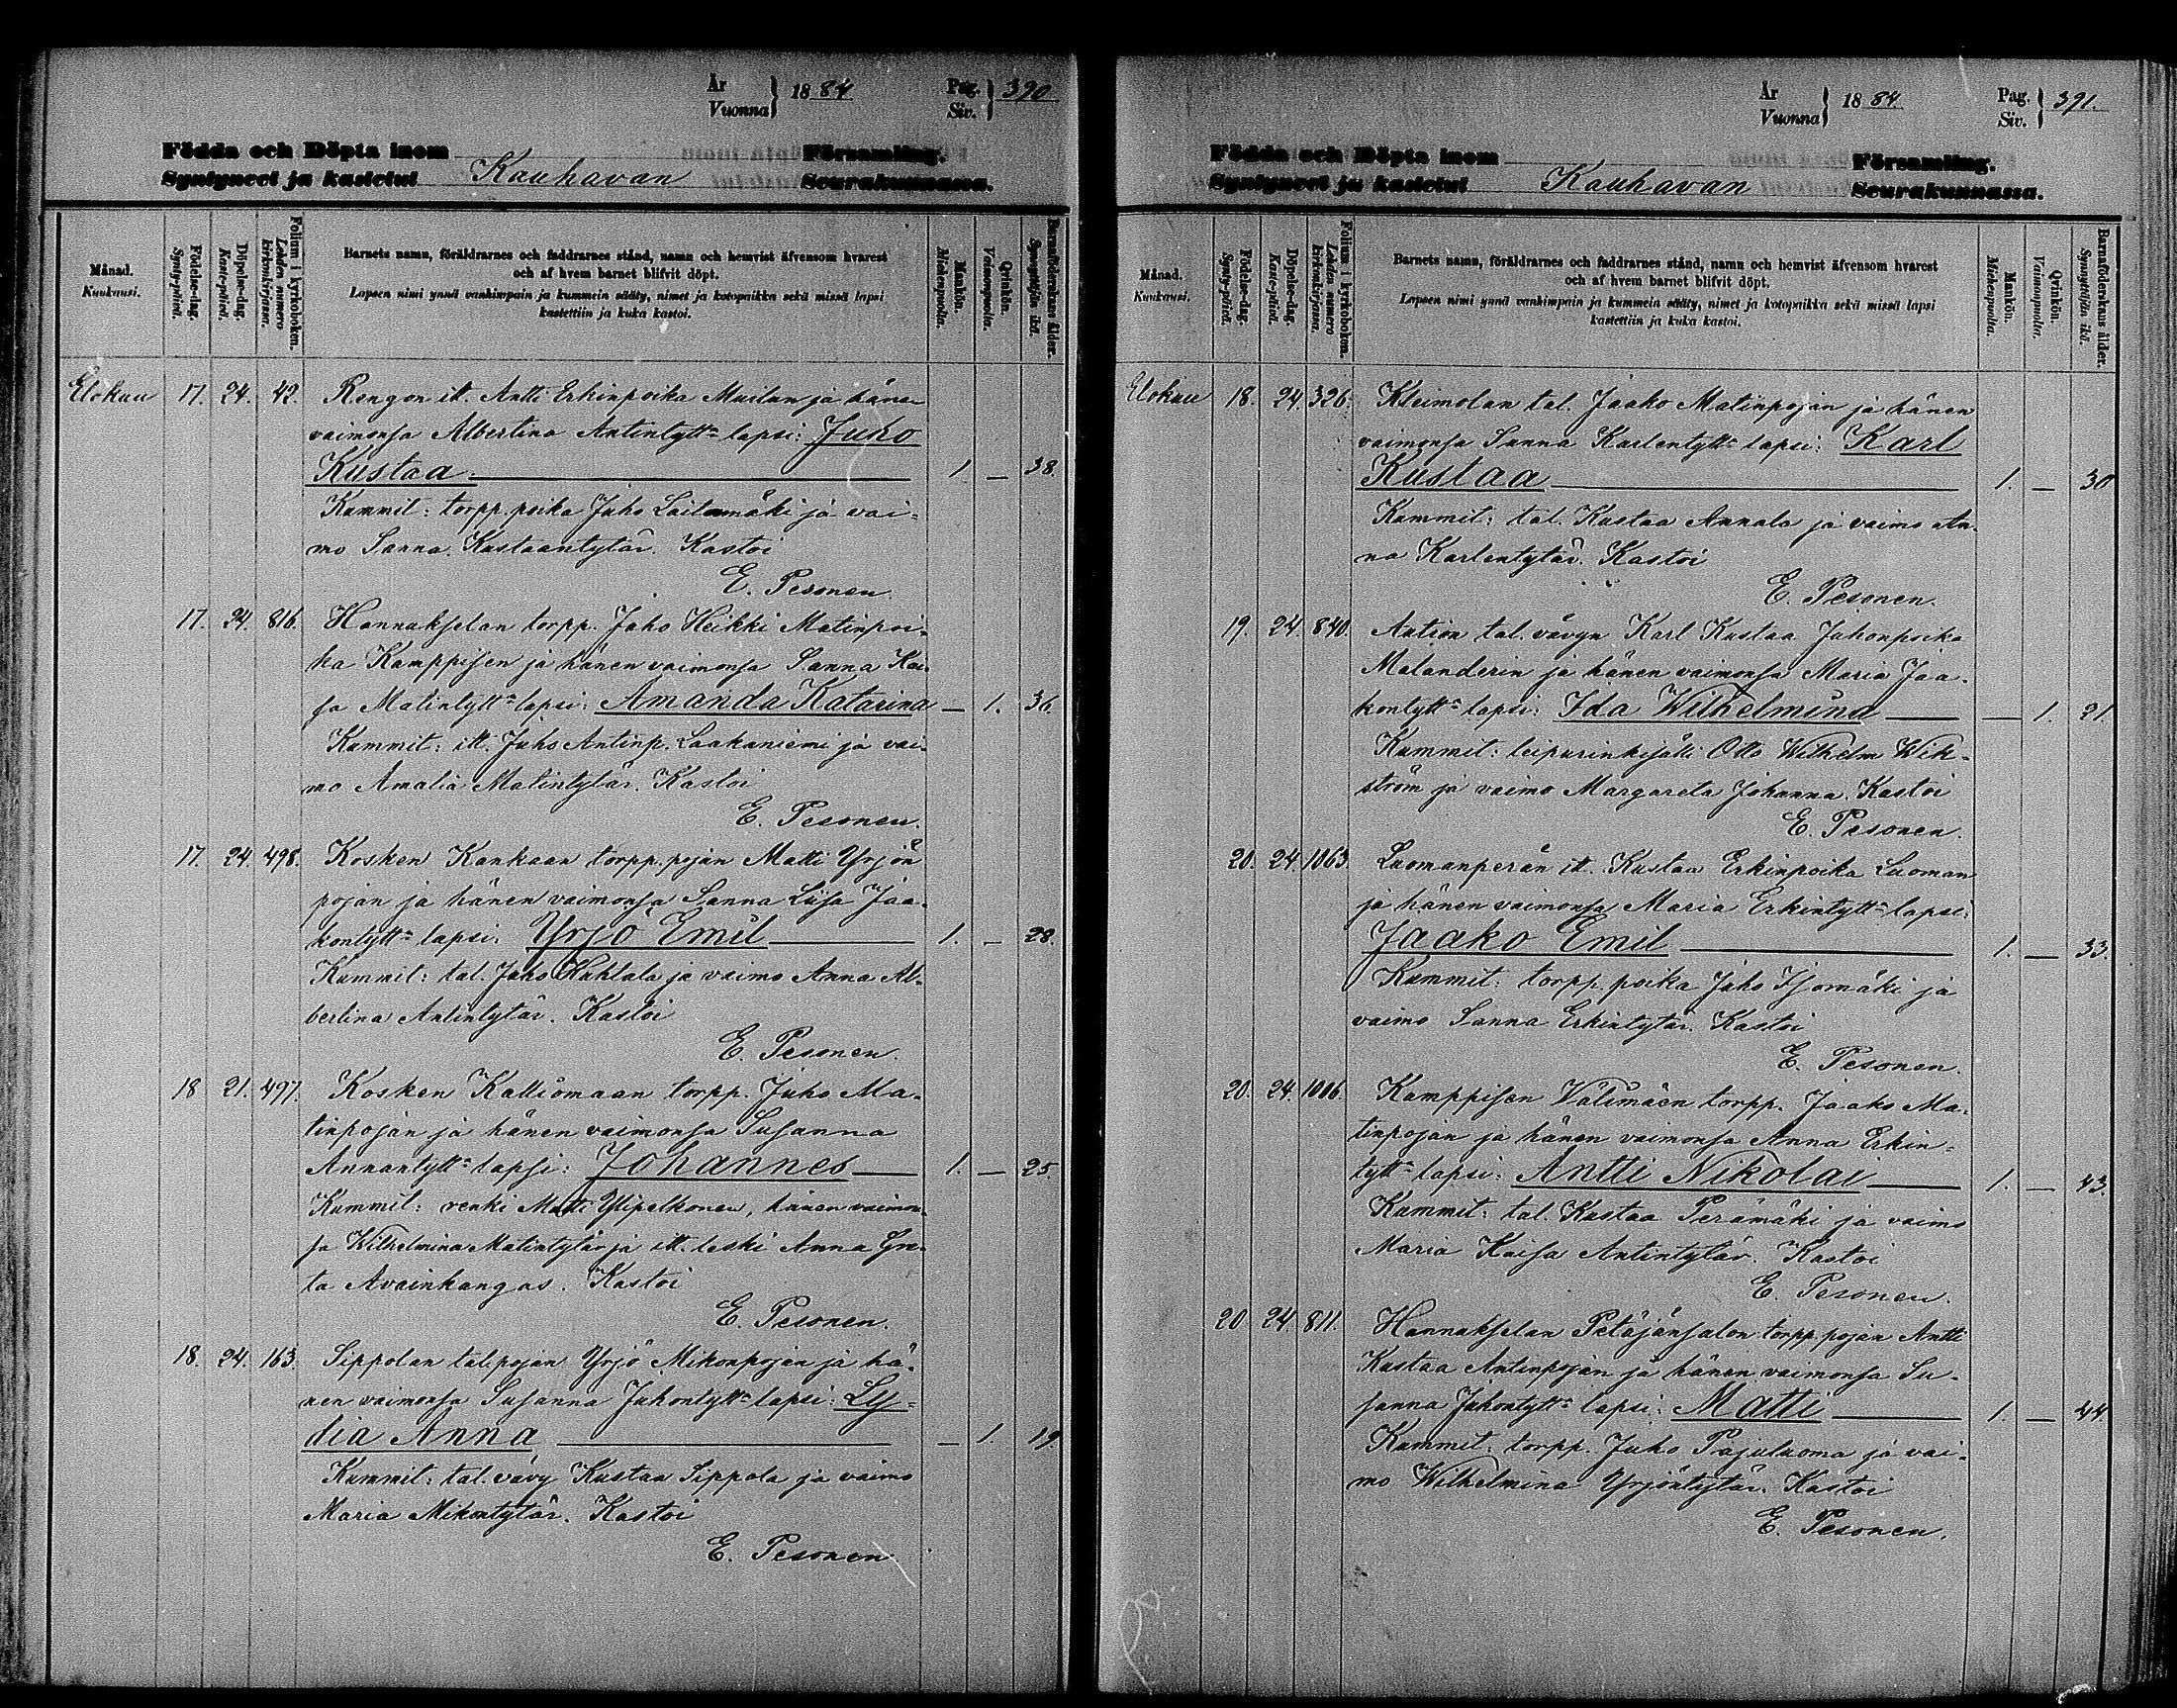 År
Vuonna } 1884 Pag.
Siv. } 390
Födda och Döpta inom Församling.
Syntyneet ja kastetut Kauhavan Seurakunnassa.
Månad.
Kuukausi.
Födelse-dag.
Synty-päivä.
Döpelse-dag.
Kaste-päivä.
Folium i kyrkoboken.
Lehden numero kirkonkirjassa.
Barnets namn, föräldrarnes och faddrarnes stånd, namn och hemvist äfvensom hvarest
och af hvem barnet blifvit döpt.
Lapsen nimi ynnä vanhimpain ja kummein sääty, nimet ja kotopaikka sekä missä lapsi
kastettiin ja kuka kastoi.
Mankön.
Miehenpuolia.
Qvinkön.
Vaimonpuolia.
Barnaföderskans ålder.
Synnyttäjän ikä.
Elokuu 17. 24. 42. Rengon itt. Antti Erkinpoika Muilun ja hänen
vaimonsa Albertina Antintytt~ lapsi: Juho
Kustaa. 1. — 38.
Kummit: torpp. poika Juho Laitamäki ja vai-
mo Sanna Kustaantytär. Kastoi
E. Pesonen.
17. 24. 816. Hannukselan torpp. Juho Heikki Matinpoi-
ka Kamppisen ja hänen vaimonsa Sanna Kai-
sa Matintytt~ lapsi: Amanda Katarina — 1. 36.
Kummit: itt. Juho Antinp. Laakaniemi ja vai-
mo Amalia Matintytär. Kastoi
E. Pesonen.
17. 24. 498. Kosken Kankaan torpp. pojan Matti Yrjön
pojan ja hänen vaimonsa Sanna Liisa Jaa-
kontytt~ lapsi: Yrjö Emil 1. — 28.
Kummit: tal. Juho Huhtala ja vaimo Anna Al-
bertina Antintytär. Kastoi
E. Pesonen.
18 21. 497. Kosken Kalliomaan torpp. Juho Ma-
tinpojan ja hänen vaimonsa Susanna
Annantytt~ lapsi: Johannes 1. — 25.
Kummit: renki Matti Ylipelkonen, hänen vaimon-
sa Wilhelmina Matintytär ja itt. leski Anna Gre-
ta Avainkangas. Kastoi
E. Pesonen.
18. 24. 163. Sippolan tal. pojan Yrjö Mikonpojan ja hä-
nen vaimonsa Susanna Juhontytt~ lapsi: Ly-
dia Anna — 1. 19.
Kummit: tal. vävy Kustaa Sippola ja vaimo
Maria Mikontytär. Kastoi
E. Pesonen
År
Vuonna } 1884 Pag.
Siv. } 391.
Födda och Döpta inom Församling.
Syntyneet ja kastetut Kauhavan Seurakunnassa.
Månad.
Kuukausi.
Födelse-dag.
Synty-päivä.
Döpelse-dag.
Kaste-päivä.
Folium i kyrkoboken.
Lehden numero kirkonkirjassa.
Barnets namn, föräldrarnes och faddrarnes stånd, namn och hemvist äfvensom hvarest
och af hvem barnet blifvit döpt.
Lapsen nimi ynnä vanhimpain ja kummein sääty, nimet ja kotopaikka sekä missä lapsi
kastettiin ja kuka kastoi.
Mankön.
Miehenpuolia.
Qvinkön.
Vaimonpuolia.
Barnaföderskans ålder.
Synnyttäjän ikä.
Elokuu 18. 24. 326. Kleimolan tal. Jaako Matinpojan ja hänen
vaimonsa Sanna Karlentytt~ lapsi: Karl
Kustaa 1. — 30
Kummit: tal. Kustaa Annala ja vaimo An-
na Karlentytär. Kastoi
E. Pesonen.
19. 24. 840. Antion tal. vävyn Karl Kustaa Juhonpoika
Malanderin ja hänen vaimonsa Maria Jaa-
kontytt~ lapsi: Ida Wilhelmina — 1. 21.
Kummit: leipurinkisälli Otto Wilhelm Wik-
ström ja vaimo Margareta Johanna. Kastoi
E. Pesonen.
20. 24. 1063. Luomanperän itt. Kustaa Erkinpoika Luoman
ja hänen vaimonsa Maria Erkintytt~ lapsi:
Jaako Emil 1. — 33.
Kummit: torpp. poika Juho Isomäki ja
vaimo Sanna Erkintytär. Kastoi
E. Pesonen.
20. 24. 1006. Kamppisen Välimäen torpp. Jaako Ma-
tinpojan ja hänen vaimonsa Anna Erkin-
tytt~ lapsi: Antti Nikolai 1. — 43.
Kummit: tal. Kustaa Perämäki ja vaimo
Maria Kaisa Antintytär. Kastoi
E. Pesonen.
20 24. 811. Hannukselan Petäjänsalon torpp. pojan Antti
Kustaa Antinpojan ja hänen vaimonsa Su-
sanna Juhontytt~ lapsi: Matti 1. — 44
Kummit: torpp. Juho Pajuluoma ja vai-
mo Wilhelmina Yrjöntytär. Kastoi
E. Pesonen.